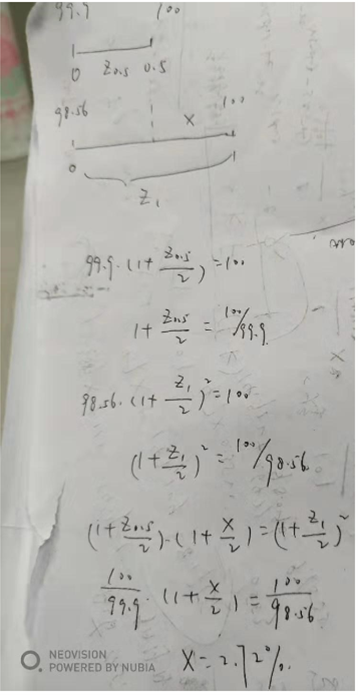 99.9 100
0 Z0.5 0.5
98.56 X 100
0
Z1
99.9·(1+Z0.5/2)=100
1+Z0.5/2=100/99.9
98.56·(1+Z1/2)²=100
(1+Z1/2)²=100/98.56
(1+Z0.5/2)·(1+X/2)=(1+Z1/2)²
100/99.9·(1+X/2)=100/98.56
X=2.72%.
NEOVISION
POWERED BY NUBIA